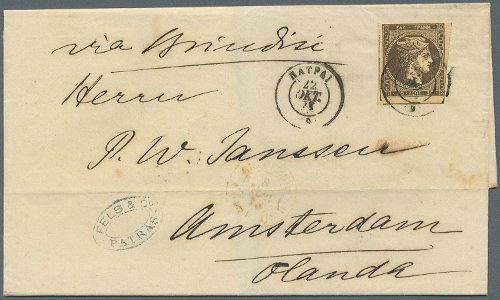 via Brindisi
ΠΑΤΡΑΙ
22
ΟΚΤ.
Herrn
P. W. Janssen
FELS & Co
PATRAS
Amsterdam
Olanda